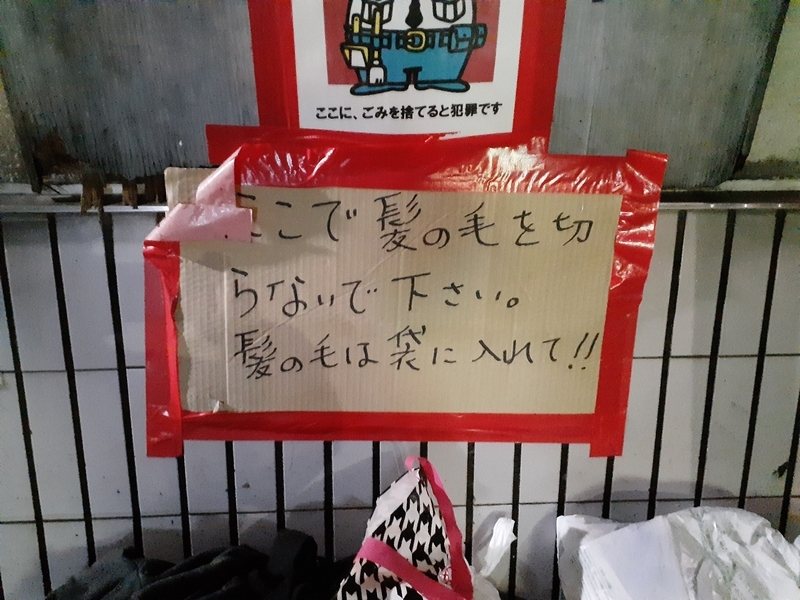 ここに、ごみを捨てると犯罪です
ここで髪の毛を切
らないで下さい。
髪の毛は袋に入れて!!